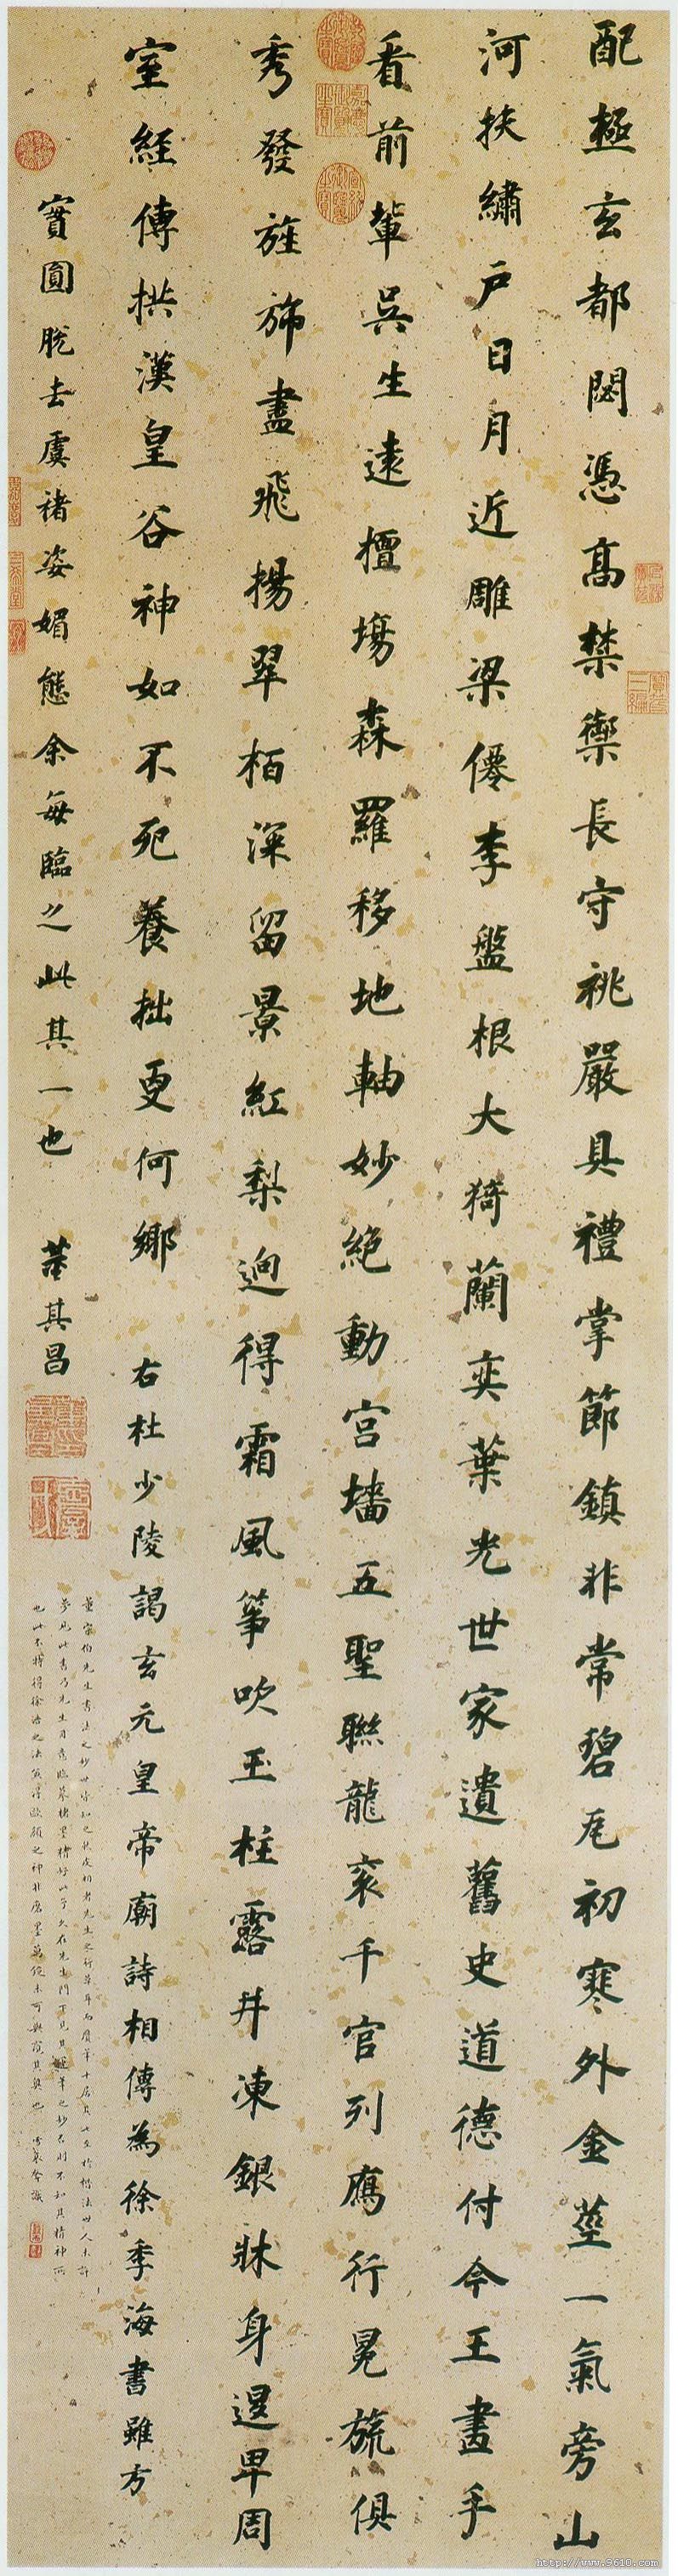 配極玄都閟憑高禁籞長守祧嚴具禮掌節鎮非常碧瓦初寒外金莖一氣旁山
河扶繡戶日月近雕梁僊李盤根大猗蘭奕葉光世家遺舊史道德付今王畫手
看前輩吳生遠擅場森羅移地軸妙絕動宮墻五聖聯龍袞千官列鴈行冕旒俱
秀發旌旆盡飛揚翠柏深留景紅梨迥得霜風箏吹玉柱露井凍銀牀身退卑周
室經傳拱漢皇谷神如不死養拙更何鄉 右杜少陵謁玄元皇帝廟詩相傳為徐季海書雖方
實圓脫去虞褚姿媚態余每臨之此其一也 董其昌
董宗伯先生書法之妙世皆知之
夢見此書乃先生
也
http://www.9610.com